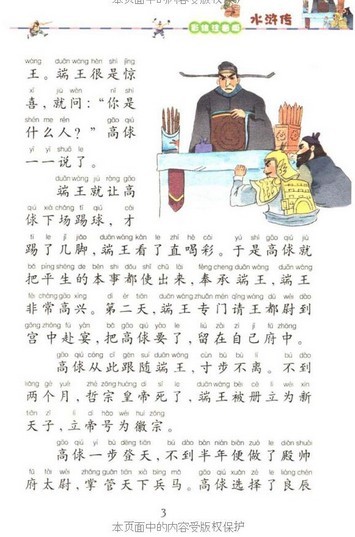 本页面中的内容受版权保护
彩绘注音版
水浒传
wáng duān wáng hěn shì jīng
王。端王很是惊
xǐ jiù wèn nǐ shì
喜，就问：“你是
shén me rén gāo qiú
什么人？”高俅
yī yī shuō le
一一说了。
duān wáng jiù ràng gāo
端王就让高
qiú xià chǎng tī qiú cái
俅下场踢球，才
tī le jǐ jiǎo duān wáng kàn le zhí hè cǎi yú shì gāo qiú jiù
踢了几脚，端王看了直喝彩。于是高俅就
bǎ píng shēng de běn shi dōu shǐ chū lái fèng chéng duān wáng duān wáng
把平生的本事都使出来，奉承端王，端王
fēi cháng gāo xìng dì èr tiān duān wáng zhuān mén qǐng wáng dū wèi dào
非常高兴。第二天，端王专门请王都尉到
gōng zhōng fù yàn bǎ gāo qiú yào le liú zài zì jǐ fǔ zhōng
宫中赴宴，把高俅要了，留在自己府中。
gāo qiú cóng cǐ gēn suí duān wáng cùn bù bù lí bú dào
高俅从此跟随端王，寸步不离。不到
liǎng gè yuè zhé zōng huáng dì sǐ le duān wáng bèi cè lì wéi xīn
两个月，哲宗皇帝死了，端王被册立为新
tiān zǐ lì dì hào wéi huī zōng
天子，立帝号为徽宗。
gāo qiú yí bù dēng tiān bú dào bàn nián biàn zuò le diàn shuài
高俅一步登天，不到半年便做了殿帅
fǔ tài wèi zhǎng guǎn tiān xià bīng mǎ gāo qiú xuǎn zé le liáng chén
府太尉，掌管天下兵马。高俅选择了良辰
3
本页面中的内容受版权保护